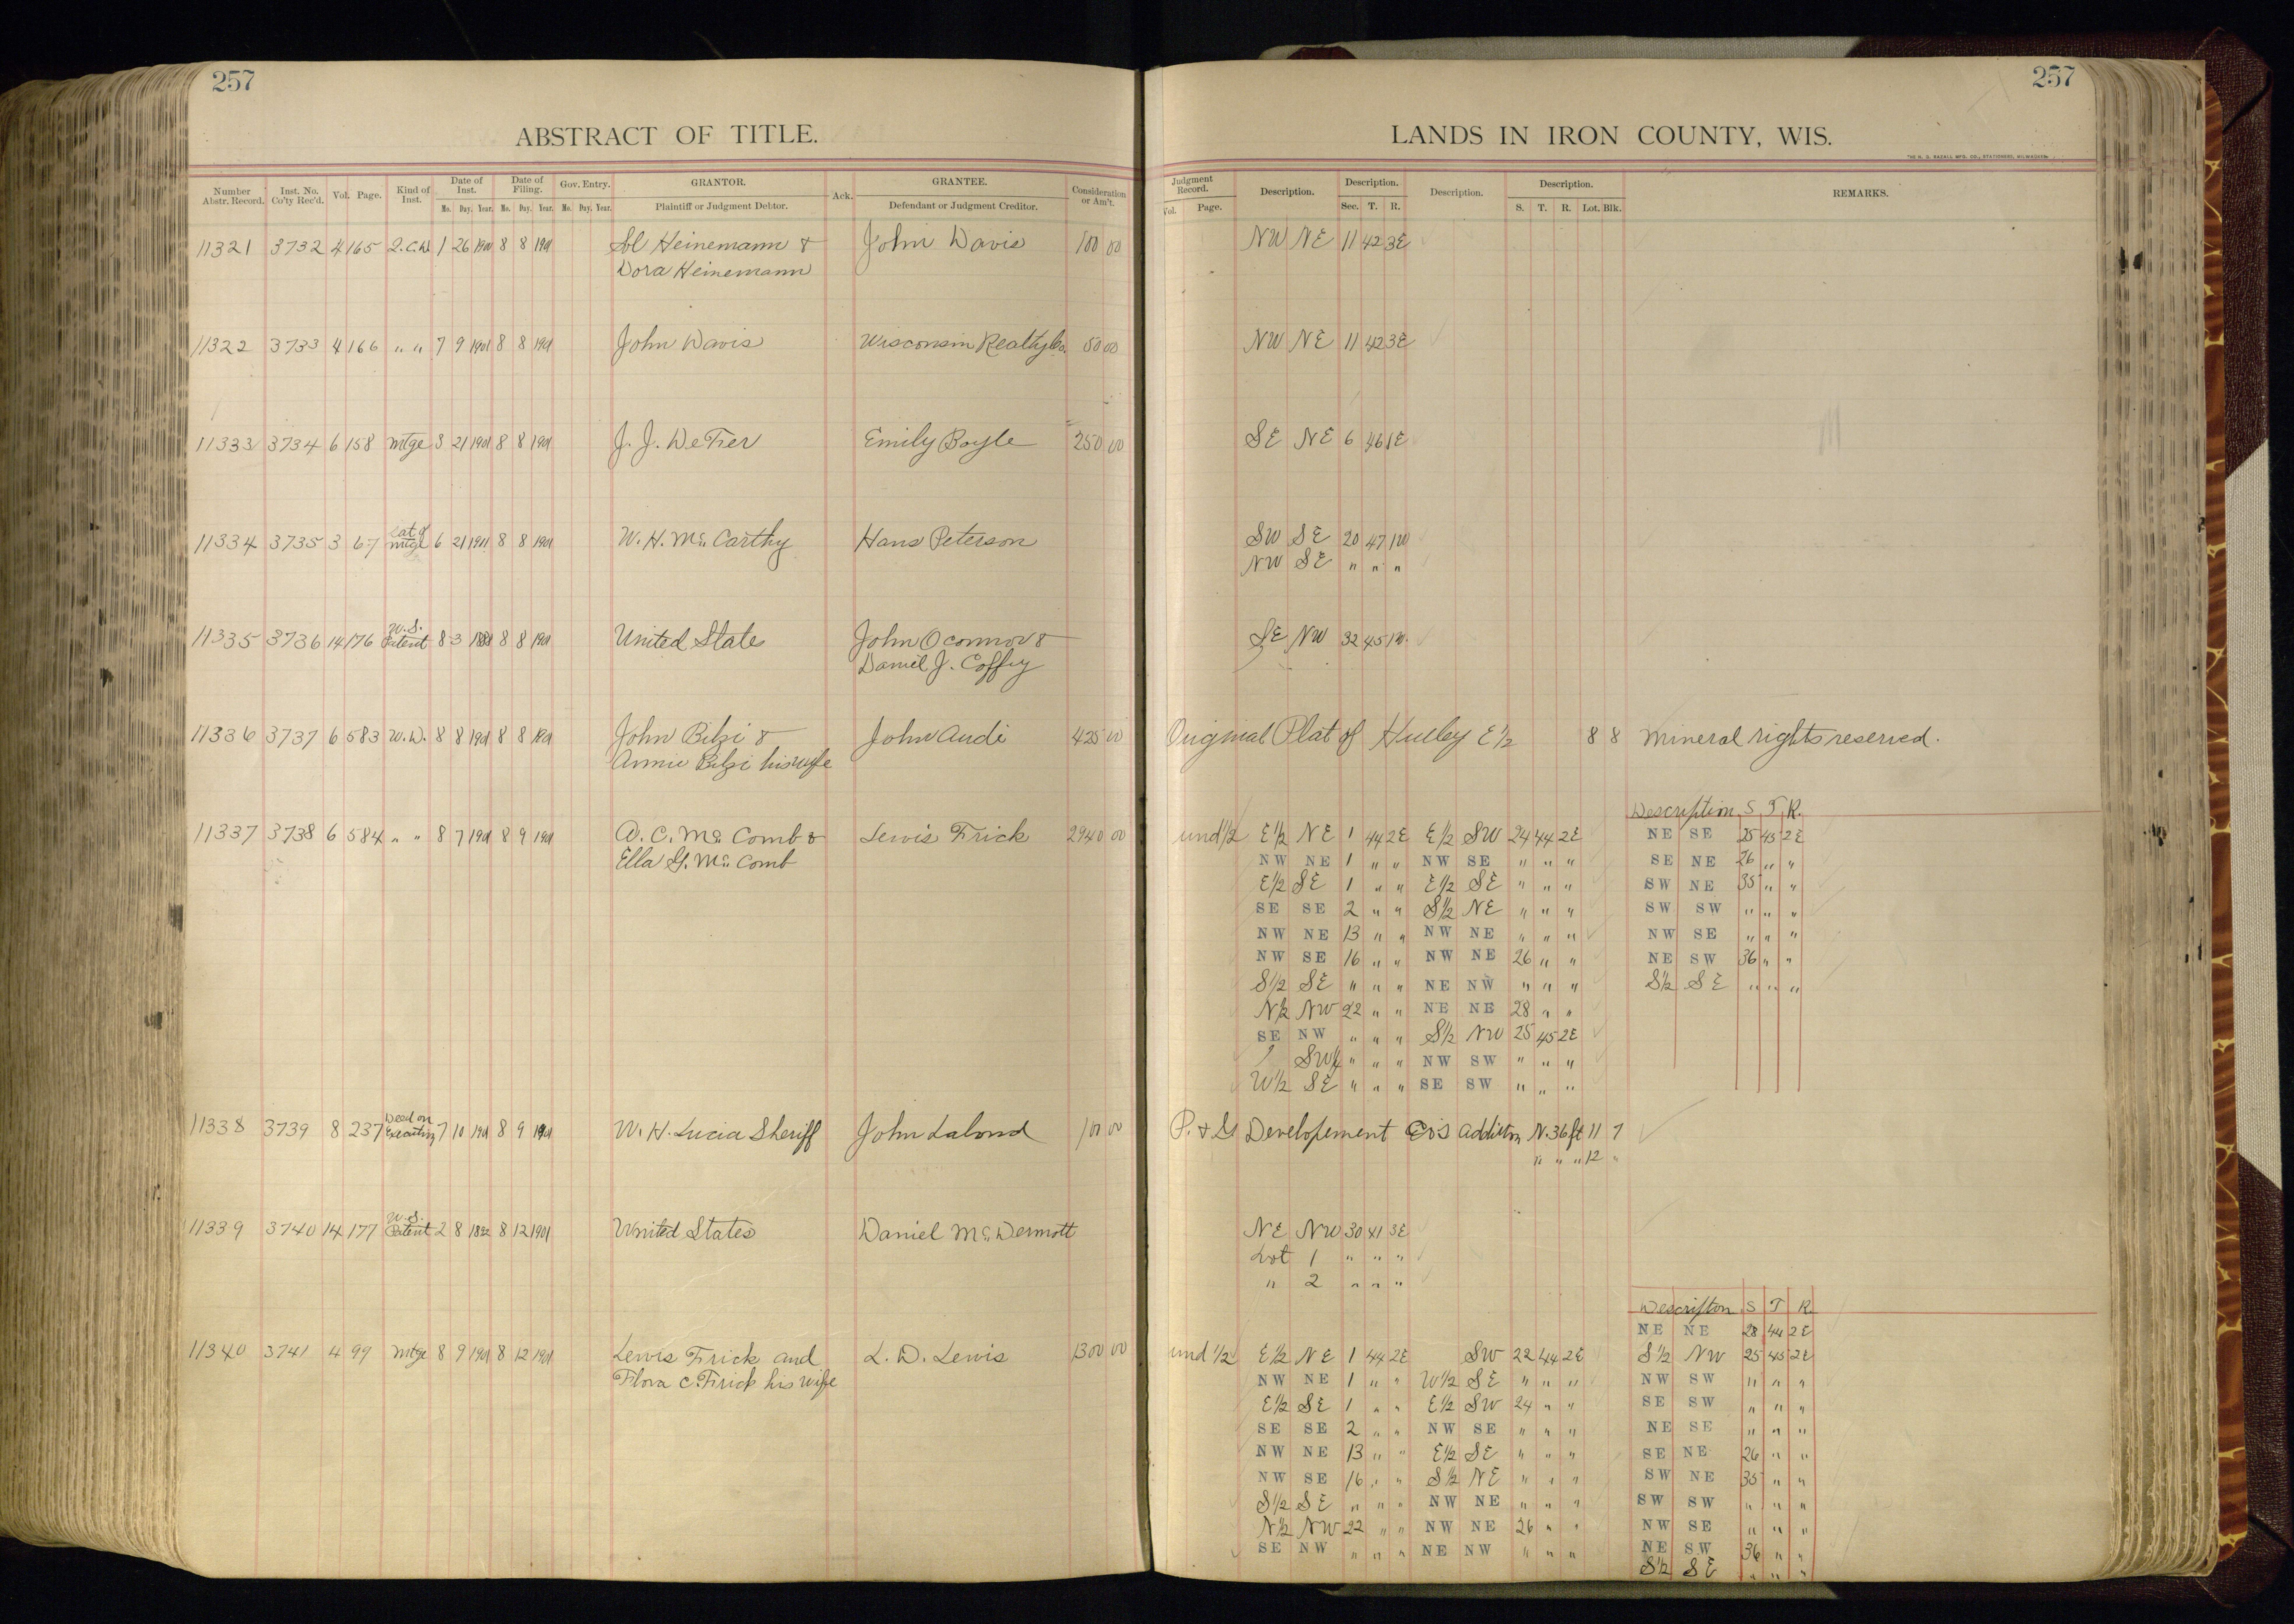 257
257
ABSTRACT OF TITLE.
LANDS IN IRON COUNTY, WIS.
THE H. G. RAZALL MFG. CO., STATIONERS, MILWAUKEE
Number Abstr. Record. Inst. No. Co'ty Rec'd. Vol. Page. Kind of Inst. Date of Inst. Mo. Day. Year. Date of Filing. Mo. Day. Year. Gov. Entry. Mo. Day. Year. GRANTOR. Plaintiff or Judgment Debtor. Ack. GRANTEE. Defendant or Judgment Creditor. Consideration or Am't.
Judgment Record. Vol. Page. Description. Description. Sec. T. R. Description. Description. S. T. R. Lot. Blk. REMARKS.
11321 3732 4 165 2.C.W. 1 26 8 8 1901 Sol Heinemann & John Davis 100 00 NW NE 11 42 3E
Dora Heinemann
11322 3733 4 166 " " 7 9 1901 8 8 1901 John Davis Wisconsin Realty Co. 50 00 NW NE 11 42 3E
11333 3734 6 158 Mtge 3 21 1901 8 8 1901 J. J. DeFer Emily Boyle 250 00 SE NE 6 46 1E
11334 3735 3 67 Mtge 6 21 1901 8 8 1901 W. H. McCarthy Hans Peterson SW SE 20 47 1W
NW SE " " "
U.S.
11335 3736 14 176 Patent 8 3 8 8 1901 United States John Oconnor & SE NW 32 45 1W.
Daniel J. Coffey
11336 3737 6 583 W.D. 8 8 1901 8 8 1901 John Bilzi & John Audi 425 00 Original Plat of Hurley E½ 8 8 Mineral rights reserved.
Annie Bilzi his wife
Description S T R.
11337 3738 6 584 " " 8 7 1901 8 9 1901 A. C. McComb & Lewis Frick 2940 00 und ½ E½ NE 1 44 2E E½ SW 24 44 2E NE SE 25 45 2E
Ella G. McComb NW NE 1 " " NW SE " " " SE NE 26 " "
E½ SE 1 " " E½ SE " " " SW NE 35 " "
SE SE 2 " " S½ NE " " " SW SW " " "
NW NE 13 " " NW NE " " " NW SE " " "
NW SE 16 " " NW NE 26 " " NE SW 36 " "
S½ SE " " " NE NW " " " S½ SE " " "
N½ NW 22 " " NE NE 28 " "
SE NW " " " S½ NW 25 45 2E
SW¼ " " " NW SW " " "
W½ SE " " " SE SW " " "
Deed on
11338 3739 8 237 Execution 7 10 1901 8 9 1901 W. H. Lucia Sheriff John Lalond 100 00 P. & G Developement Co's Addition N. 36 ft 11 7
" " " 12 "
U.S.
11339 3740 14 177 Patent 2 8 1892 8 12 1901 United States Daniel McDermott NE NW 30 41 3E
Lot 1 " " "
" 2 " " "
Description S T R.
NE NE 28 44 2E
11340 3741 4 99 Mtge 8 9 1901 8 12 1901 Lewis Frick and L. D. Lewis 1300 00 und ½ E½ NE 1 44 2E SW 22 44 2E S½ NW 25 45 2E
Flora C. Frick his wife NW NE 1 " " W½ SE " " " NW SW " " "
E½ SE 1 " " E½ SW 24 " " SE SW " " "
SE SE 2 " " NW SE " " " NE SE " " "
NW NE 13 " " E½ SE " " " SE NE 26 " "
NW SE 16 " " S½ NE " " " SW NE 35 " "
S½ SE " " " NW NE " " " SW SW " " "
N½ NW 22 " " NW NE 26 " " NW SE " " "
SE NW " " " NE NW " " " NE SW 36 " "
S½ SE " " "